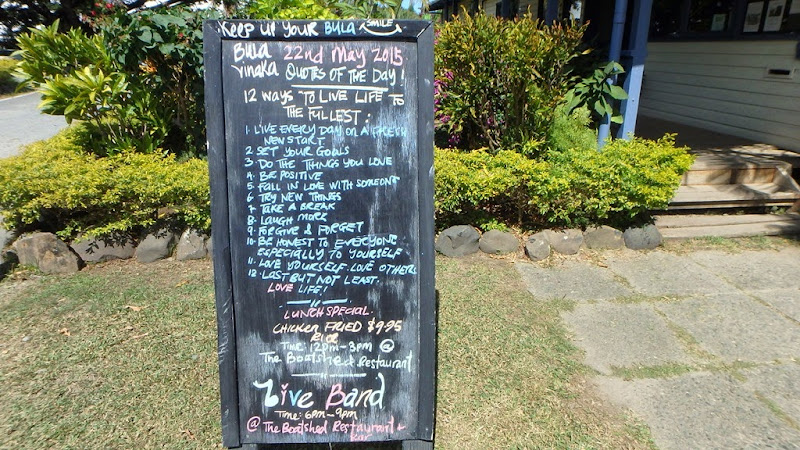 Keep up your Bula Smile
Bula 22nd May 2015
Vinaka Quotes of the Day!
12 ways to live life to
the fullest:
1. Live every day on a fresh
new start
2. Set your goals
3. Do the things you love
4. Be positive
5. Fall in love with someone
6. Try new things
7. Take a break
8. Laugh more
9. Forgive & forget
10. Be honest to everyone
especially to yourself
11. Love yourself. Love others
12. Last but not least.
Love life!
Lunch Special
Chicken Fried $9.95
Rice
Time: 12pm-3pm @
The Boatshed Restaurant
Live Band
Time: 6pm-9pm
@ The Boatshed Restaurant &
Bar